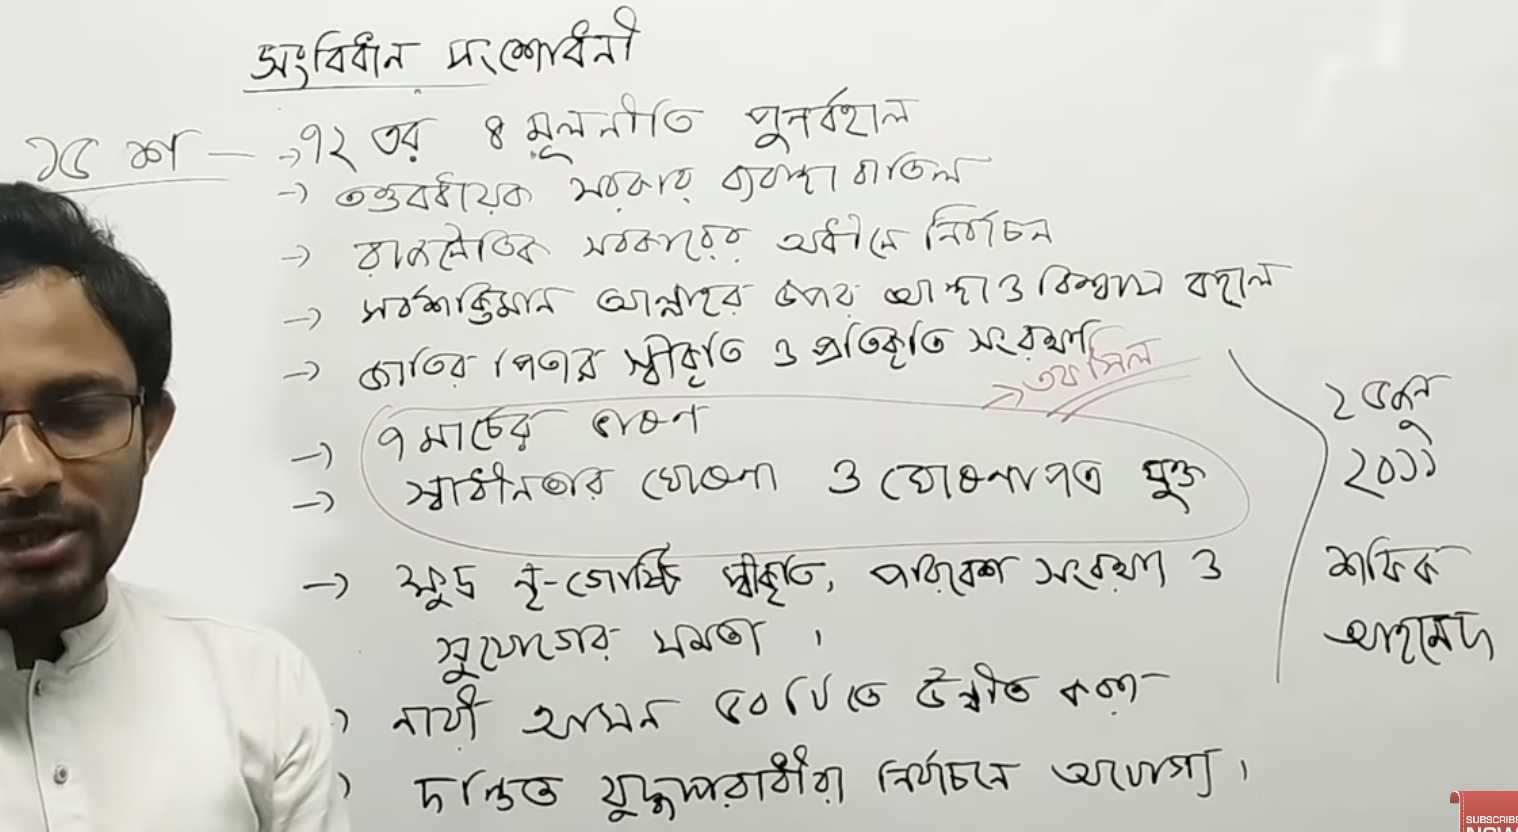 সংবিধান সংশোধনী
১৫ শ — → ৭২ এর ৪ মূলনীতি পুনর্বহাল
→ তত্ত্বাবধায়ক সরকার ব্যবস্থা বাতিল
→ রাজনৈতিক সরকারের অধীনে নির্বাচন
→ সর্বশক্তিমান আল্লাহর উপর আস্থা ও বিশ্বাস বহাল
→ জাতির পিতার স্বীকৃতি ও প্রতিকৃতি সংরক্ষণ
→ তফসিল
→ ৭ মার্চের ভাষণ
→ স্বাধীনতার ঘোষনা ও ঘোষনাপত্র যুক্ত
→ ক্ষুদ্র নৃ-গোষ্ঠি স্বীকৃতি, পরিবেশ সংরক্ষণ ও
সুযোগের সমতা ।
নারী আসন ৫০ টি তে উন্নীত করা
দণ্ডিত যুদ্ধাপরাধীরা নির্বাচনে অযোগ্য ।
২৫ জুন
২০১১
শফিক
আহমেদ
SUBSCRIBE
NOW